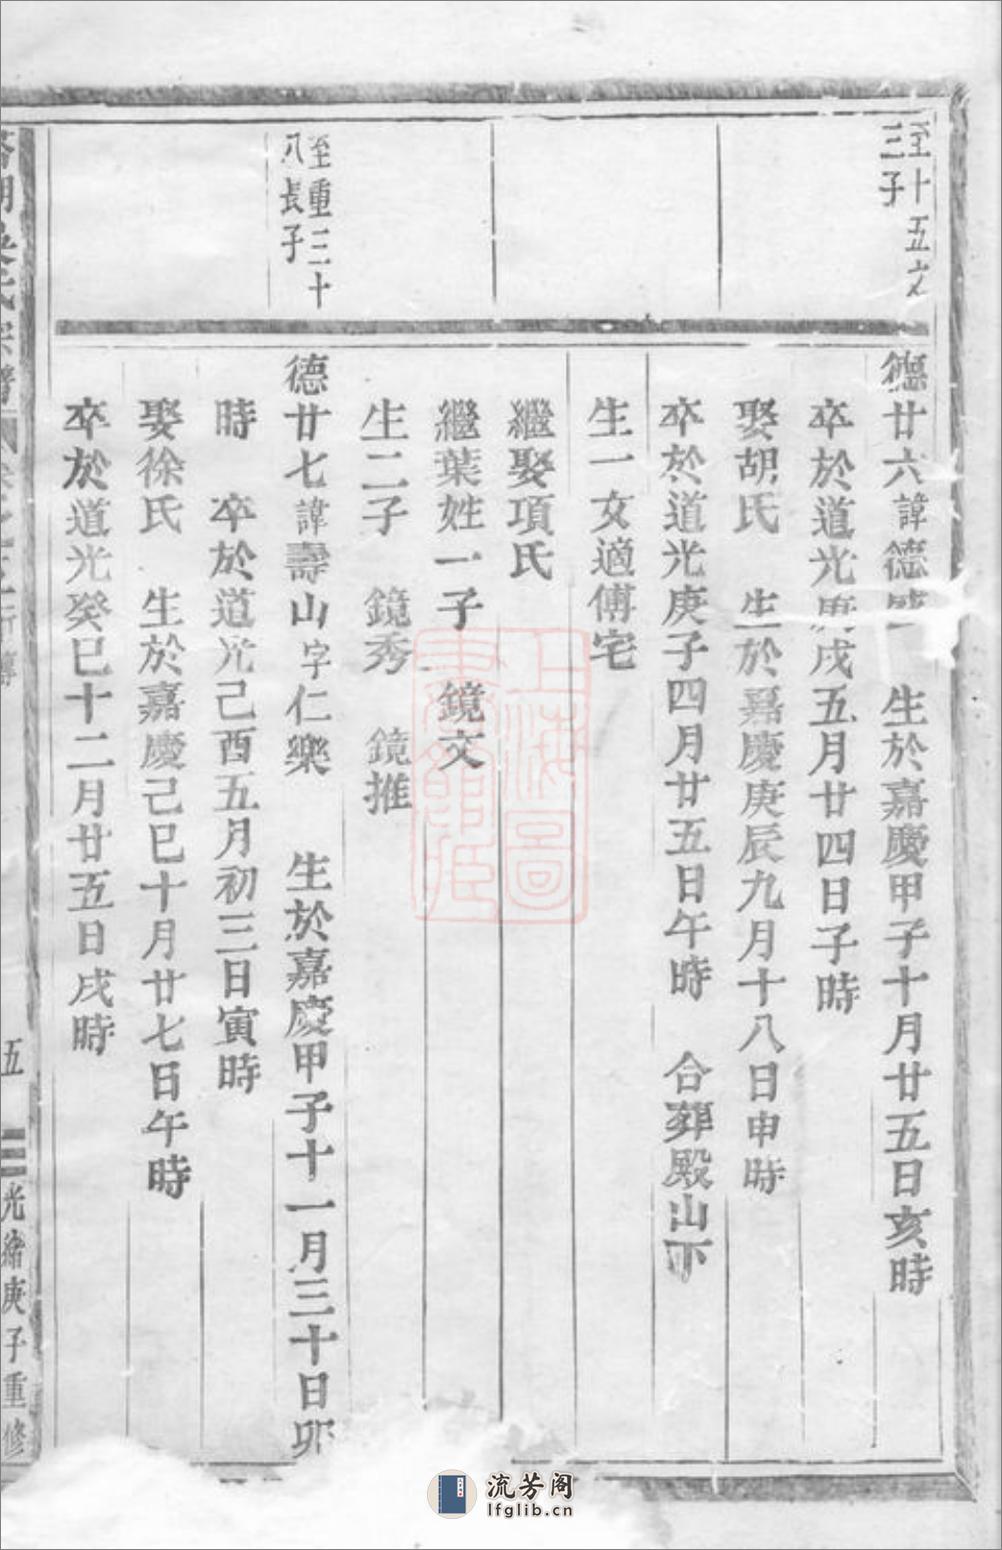 至十五文
三子
德廿六諱德 生於嘉慶甲子十月廿五日亥時
卒於道光庚戌五月廿四日子時
娶胡氏 生於嘉慶庚辰九月十八日申時
卒於道光庚子四月廿五日午時 合葬殿山下
生一女適傅宅
繼娶項氏
繼葉姓一子 鏡文
生二子 鏡秀 鏡推
至重三十
八長子
德廿七諱壽山字仁樂 生於嘉慶甲子十一月三十日卯
時 卒於道光己酉五月初三日寅時
娶徐氏 生於嘉慶己巳十月廿七日午時
卒於道光癸巳十二月廿五日戌時
五
光緒庚子重修
上海圖
書館藏
流芳阁
lfglib.cn